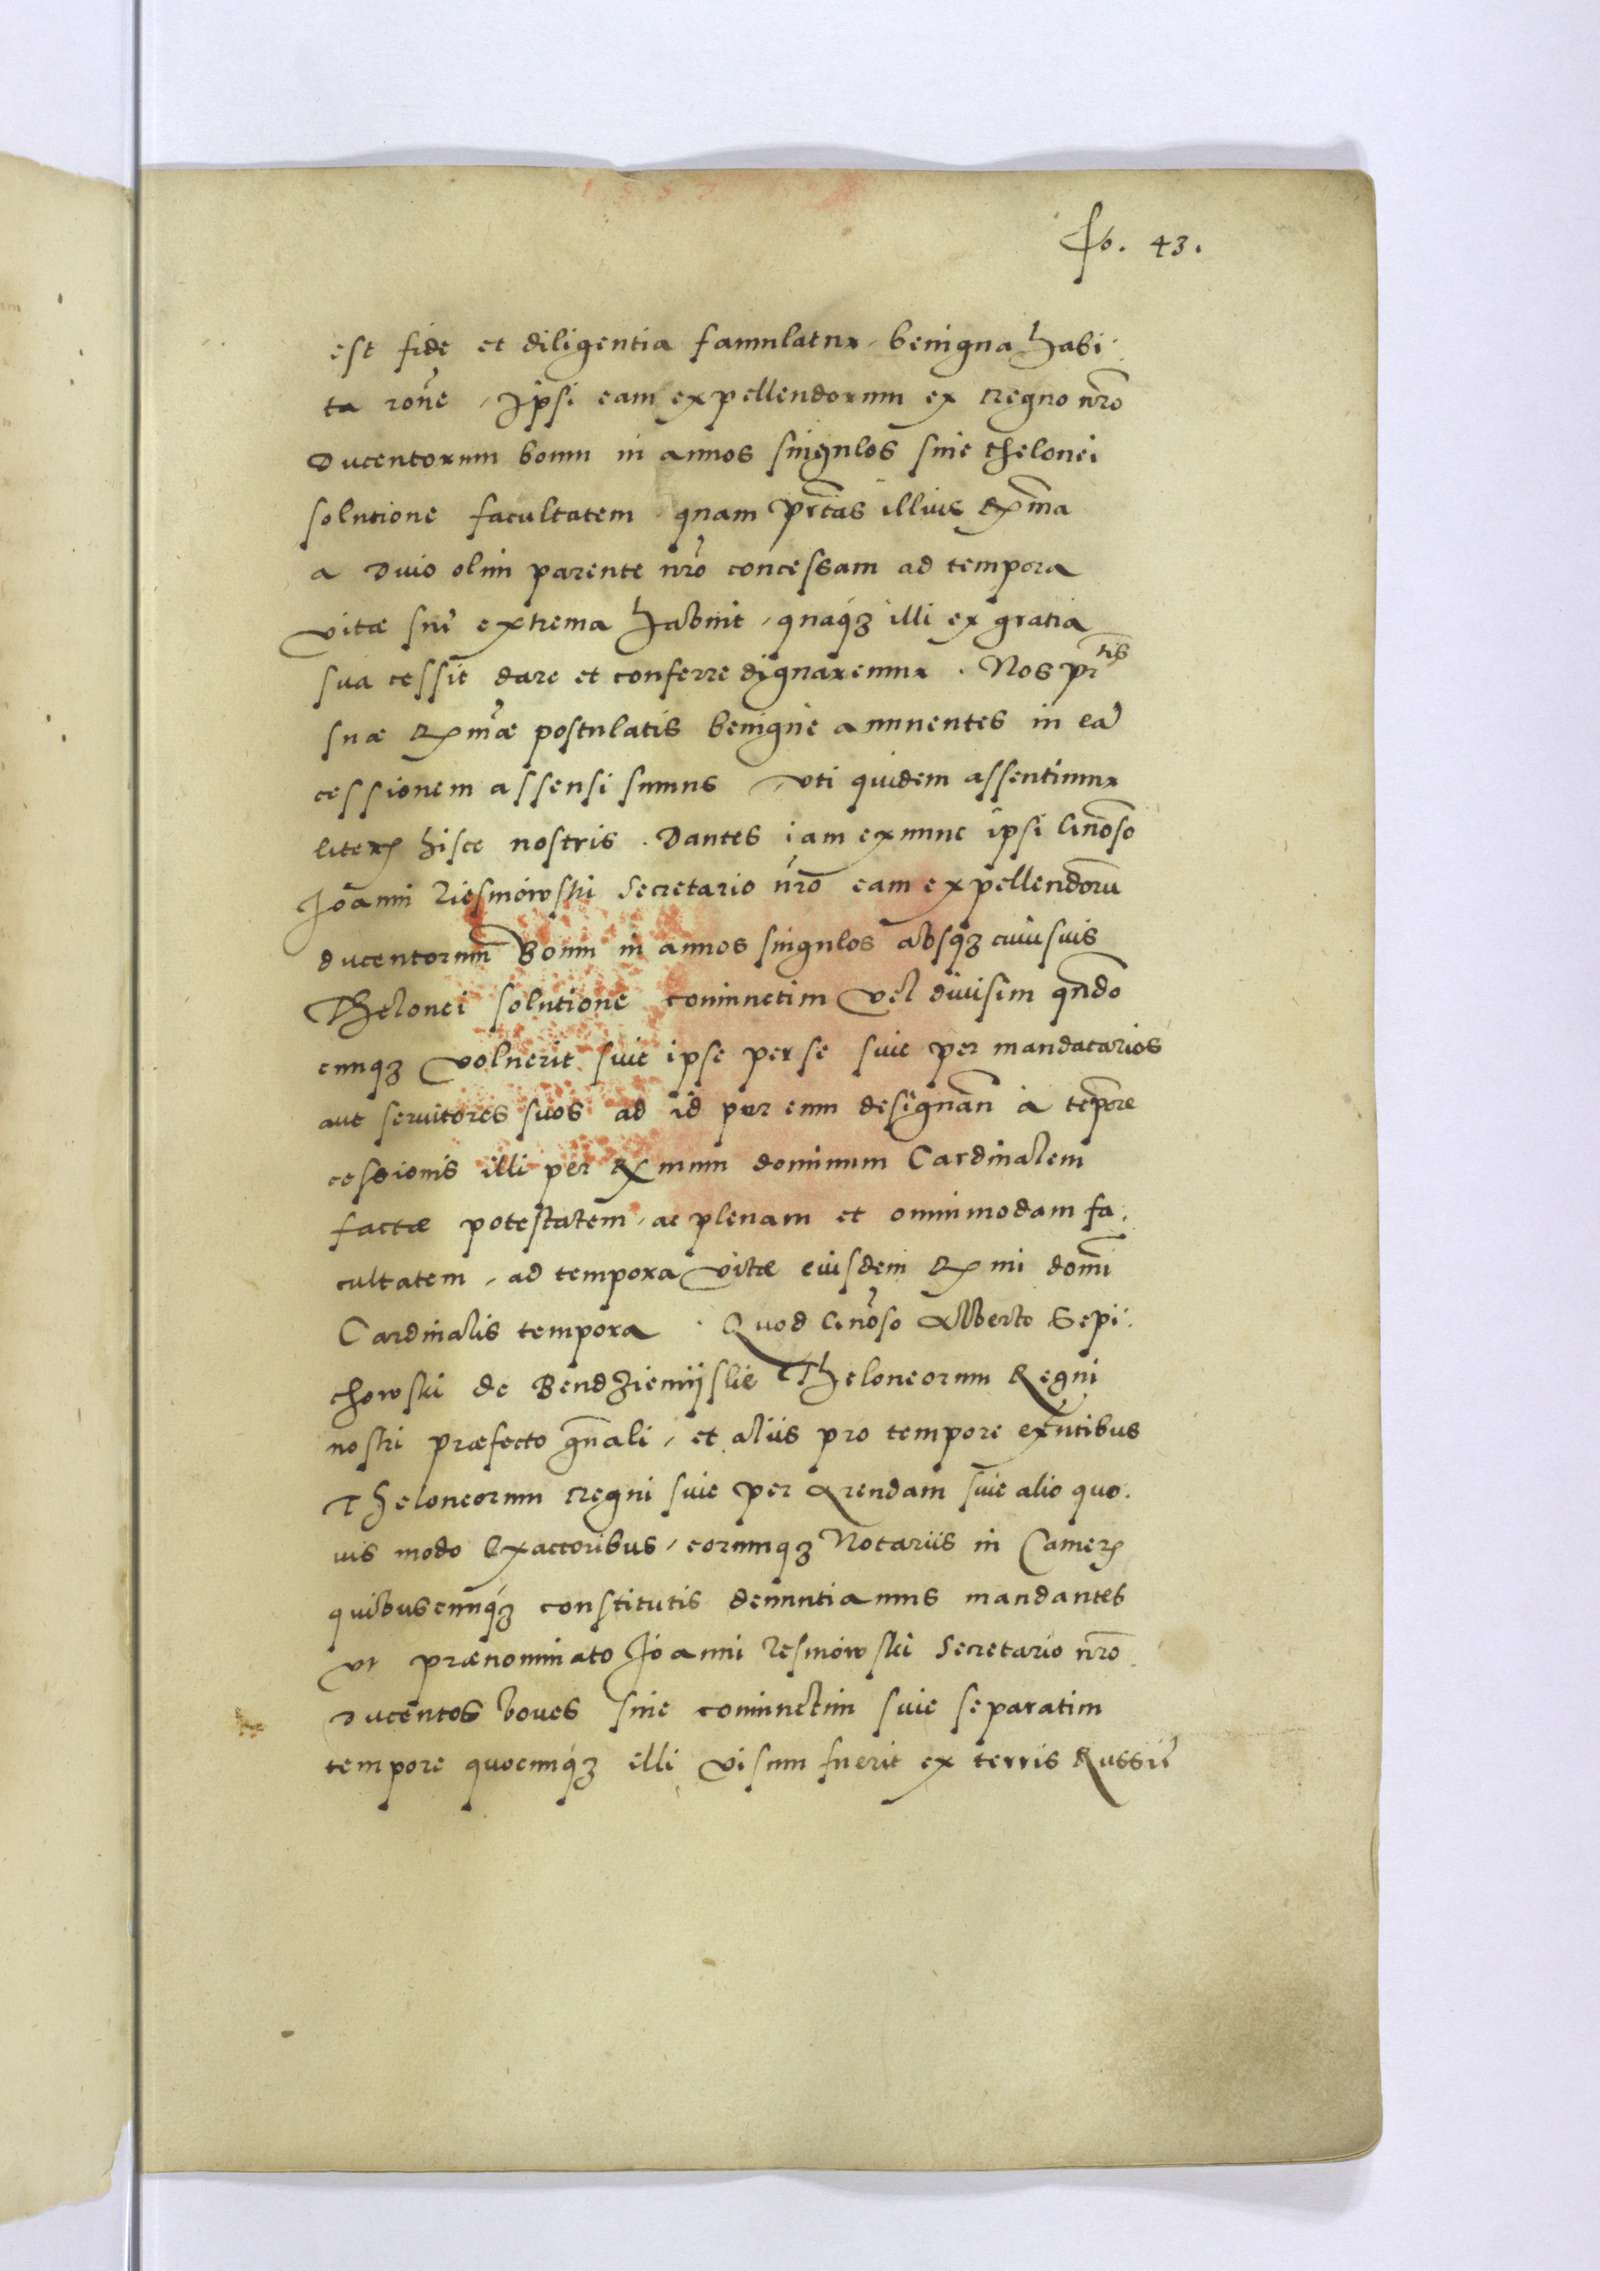 fo. 43.
est fide et diligentia famulatur, benigna habi:
ta rone, Ipsi eam expellendorum ex regno nro
Ducentorum boum in annos singulos sine thelonei
solutione facultatem, quam prtas illius Rxma
a Divo olim parente nro concessam ad tempora
vitæ suę extrema habuit, quāqz illi ex gratia
sua cessit dare et conferre dignaremur. Nos prtis
suæ Rxmæ postulatis benigne annuentes in eā
cessionem assensi sumus, uti quidem assentimur
literis hisce nostris. Dantes iam ex nunc ipsi Gnoso
Ioanni Resmowski Secretario nro eam expellendorū
ducentorum Boum in annos singulos absqz cuiusuis
Thelonei solutione coniunctim vel diuisim qndo
cunqz voluerit, siue ipse per se siue per mandatarios
aut seruitores suos ad id per eum designan a tempore
cessionis illi per Rxmum dominum Cardinalem
factæ potestatem, ac plenam et omnimodam fa:
cultatem, ad tempora vitæ eiusdem Rxmi domi
Cardinalis tempora. Quod Gnoso Alberto Sepi:
chowski de Bendziemijslie Theloneorum Regni
nostri præfecto gnali, et aliis pro tempore exntibus
Theloneorum regni siue per Arendam siue alio quo:
uis modo Exactoribus, eorumqz Notariis in Cameris
quibuscunqz constitutis denuntiamus mandantes
Vt prænominato Ioanni Resmowski Secretario nro
Ducentos boues siue coniunctim siue separatim
tempore quocunqz illi visum fuerit ex terris Russię